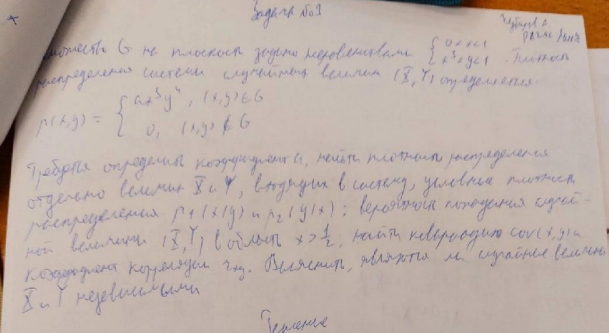 Задача №1
Множество G на плоскости задано неравенствами { 0<x<1 x³<y<1 . Плотность
распределения системы случайных величин (X,Y) определяется
p(x,y) = { ax³y⁴, (x,y)∈G
0, (x,y)∉G
Требуется определить коэффициент a, найти плотность распределения
отдельно величин X и Y, входящих в систему, условные плотности
распределения p₁(x|y) и p₂(y|x); вероятность попадания случай-
ной величины (X,Y) в область x>1/2, найти ковариацию cov(x,y) и
коэффициент корреляции rxy. Выяснить, являются ли случайные величины
X и Y независимыми
Решение